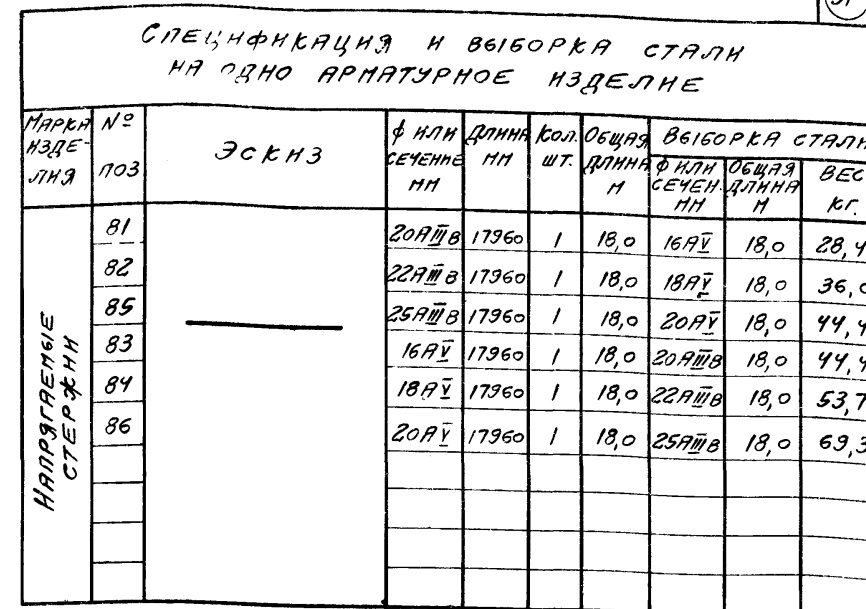 Спецификация и выборка стали
на одно арматурное изделие
Марка изде-лия | № поз | Эскиз | ф или сечение мм | Длина мм | Кол. шт. | Общая длина м | Выборка стали
ф или сечен. мм | Общая длина м | Вес кг.
Напрягаемые стержни
81 | 20АIIIв | 17960 | 1 | 18,0 | 16АV | 18,0 | 28,4
82 | 22АIIIв | 17960 | 1 | 18,0 | 18АV | 18,0 | 36,0
85 | 25АIIIв | 17960 | 1 | 18,0 | 20АV | 18,0 | 44,4
83 | 16АV | 17960 | 1 | 18,0 | 20АIIIв | 18,0 | 44,4
84 | 18АV | 17960 | 1 | 18,0 | 22АIIIв | 18,0 | 53,7
86 | 20АV | 17960 | 1 | 18,0 | 25АIIIв | 18,0 | 69,3